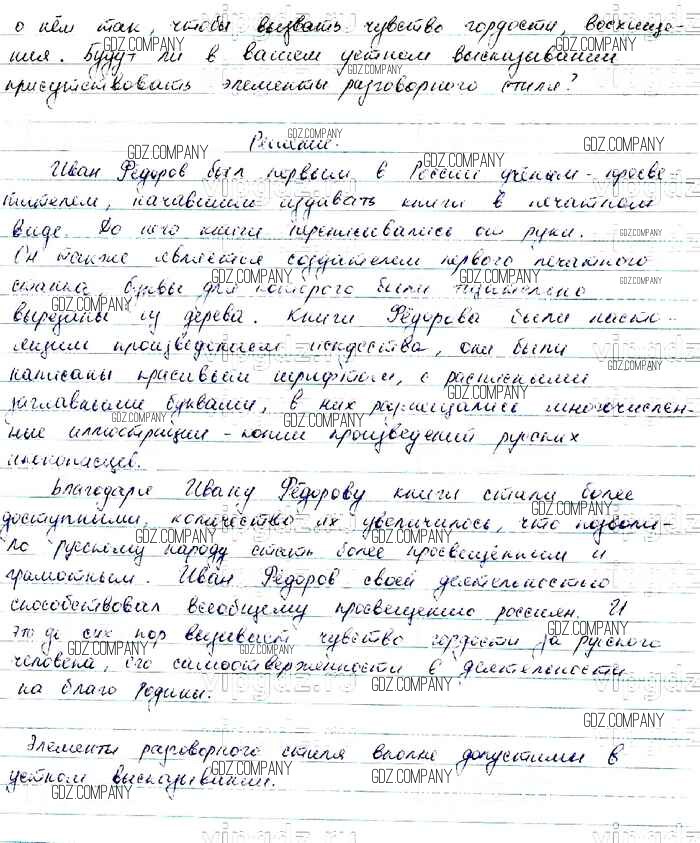 о нём так, чтобы вызвать чувство гордости, восхище-
ния. Будут ли в вашем устном высказывании
присутствовать элементы разговорного стиля?
Решение.
Иван Фёдоров был первым в России учёным-просве-
тителем, начавшим издавать книги в печатном
виде. До него книги переписывались от руки.
Он также является создателем первого печатного
станка, буквы для которого были тщательно
вырезаны из дерева. Книги Фёдорова были насто-
ящим произведением искусства, они были
написаны красивым шрифтом, с расписными
заглавными буквами, в них размещались многочислен-
ные иллюстрации - копии произведений русских
иконописцев.
Благодаря Ивану Фёдорову книги стали более
доступными, количество их увеличилось, что позволи-
ло русскому народу стать более просвещённым и
грамотным. Иван Фёдоров своей деятельностью
способствовал всеобщему просвещению россиян. И
это до сих пор вызывает чувство гордости за русского
человека, его самоотверженности в деятельности
на благо Родины.
Элементы разговорного стиля вполне допустимы в
устном высказывании.
GDZ.COMPANY
vipgdz.ru